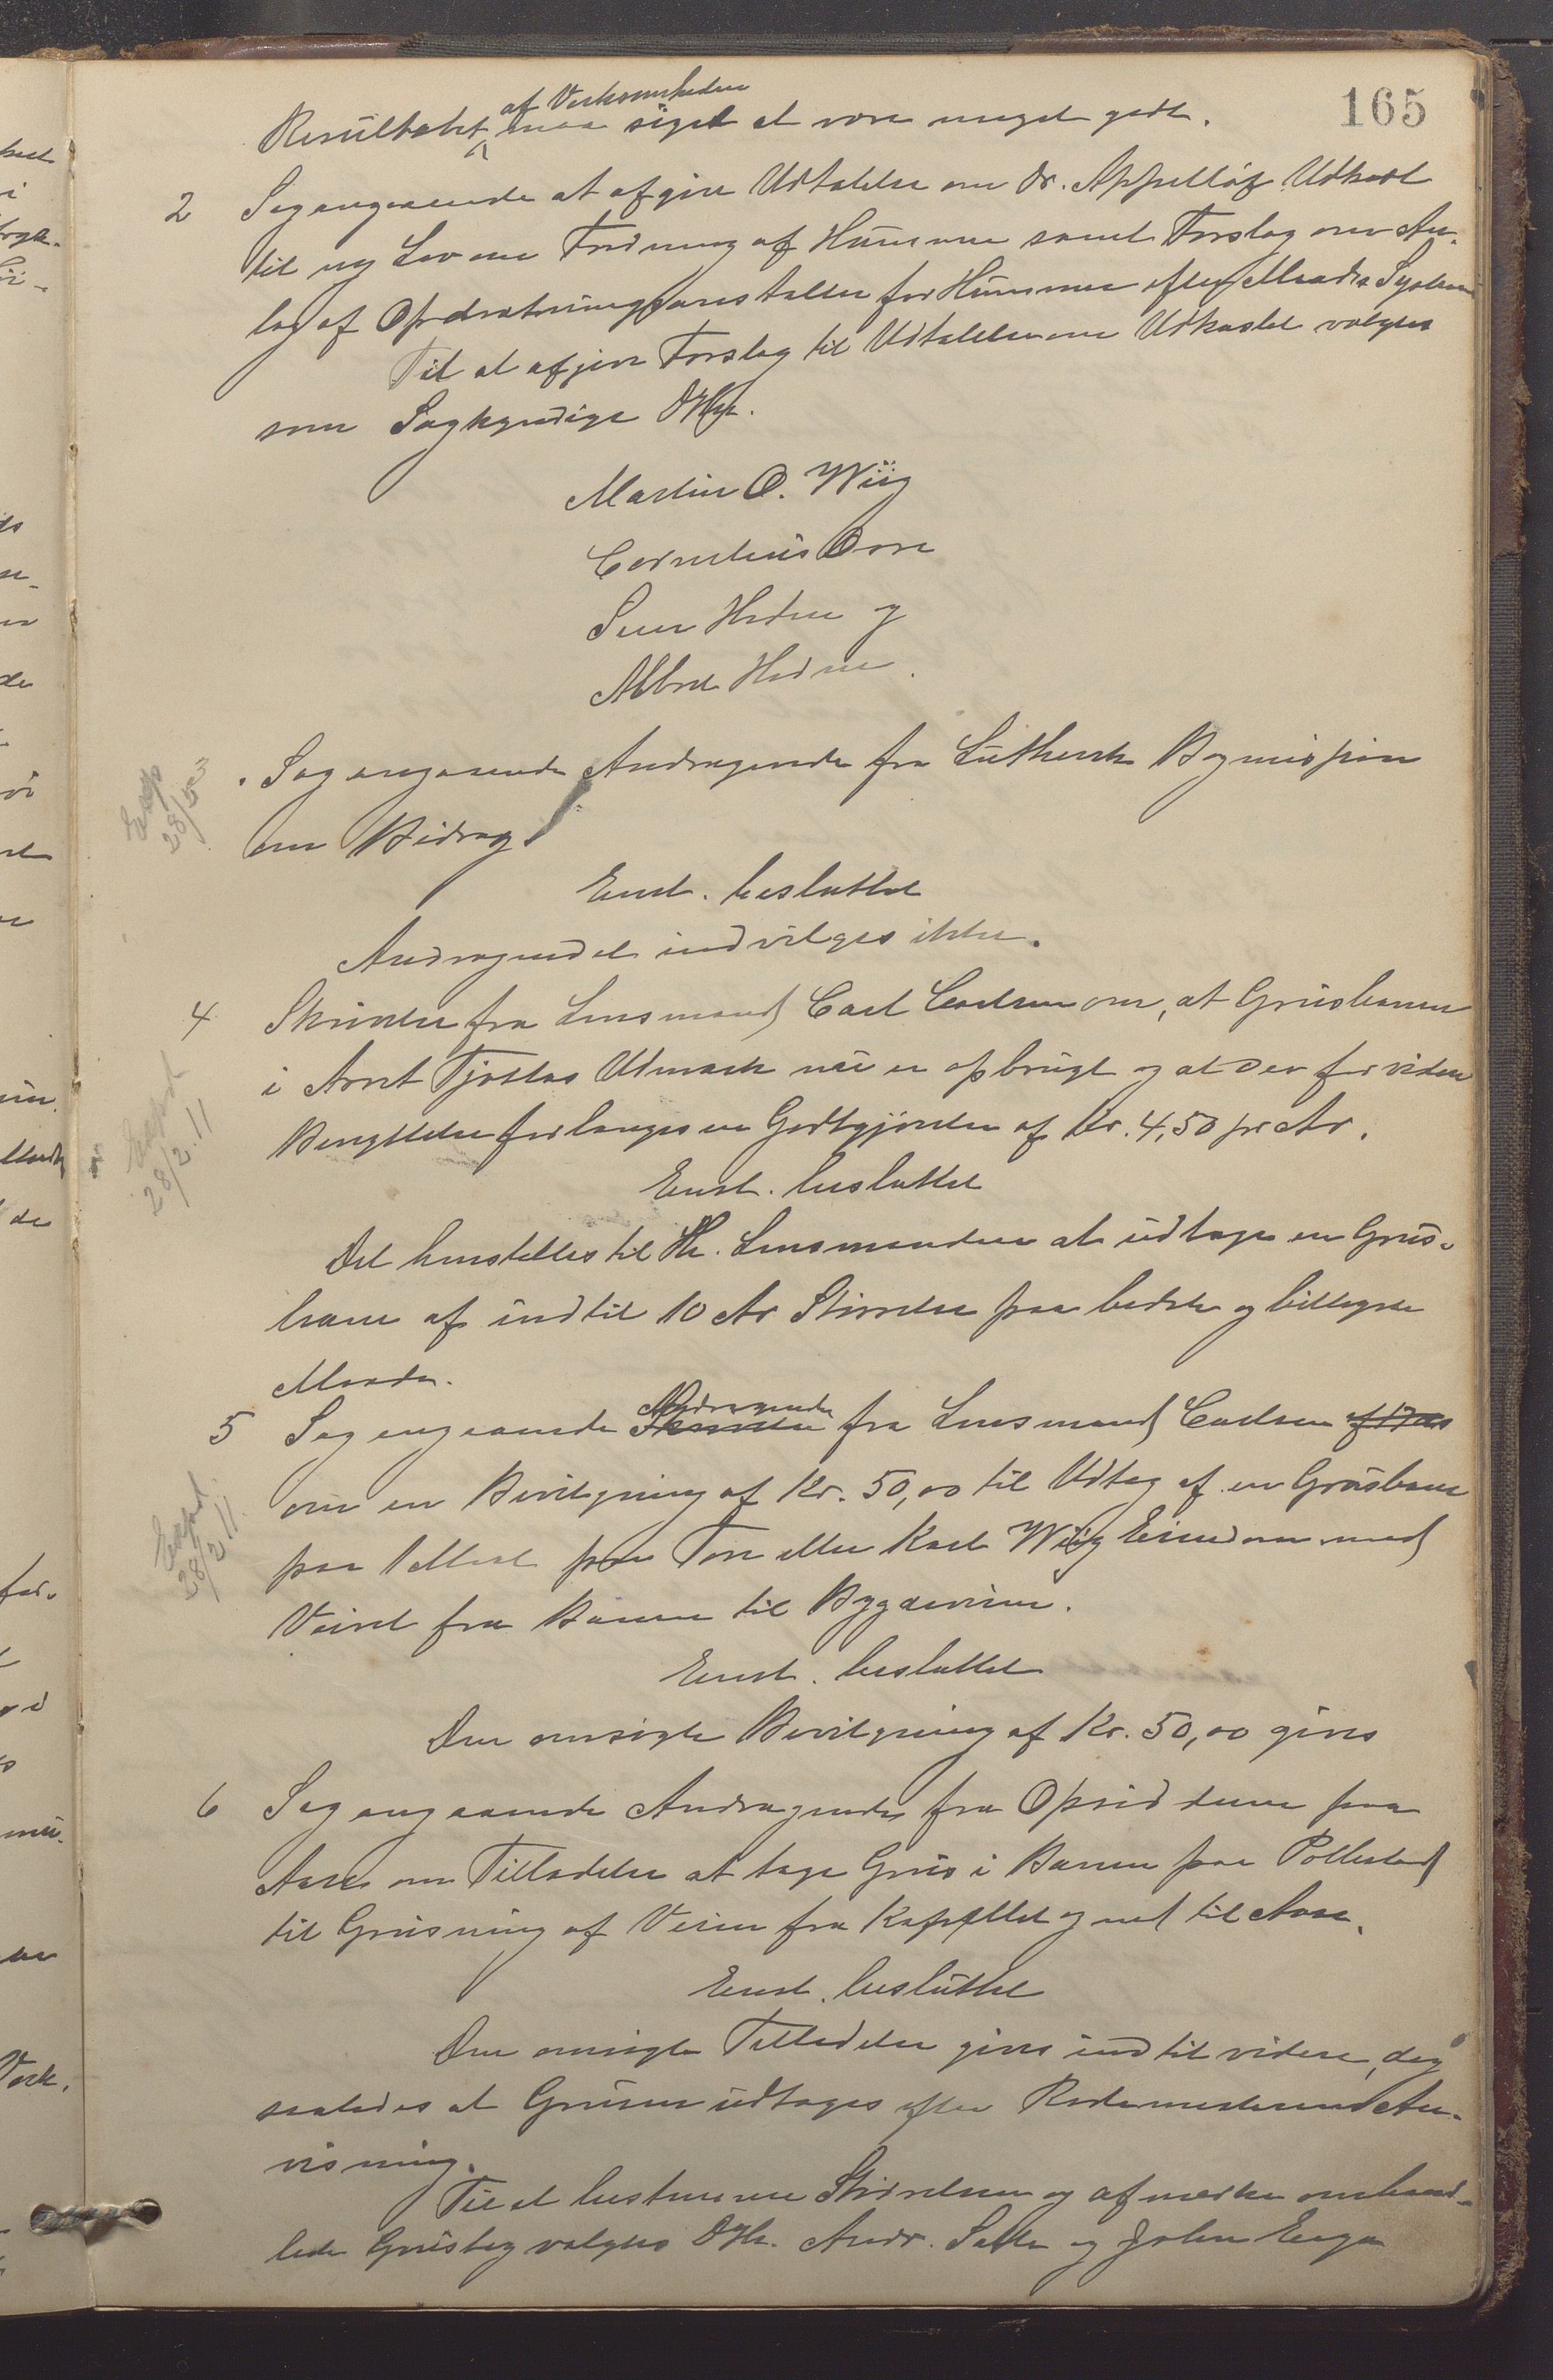 165
af Verksomheden
Resultatet maa siges at være meget godt.
2 Sag angaaende at afgive Udtalelse om Dr. Appelløf Udkast
til ny Lov om Fredning af Hummer samt Forslag om An-
læg af Opdrætningsanstalter for Hummer efter Meades System
Til at afgive Forslag til Udtalelse om Udkastet valgtes
som Sagkyndige DHr.
Martin O. Wiig
Cornelius
Hodne og
Hodne.
Exp
28/2
Sag angaaende Andragende fra Luthersk Bymission
om Bidrag.
Enst. besluttet
Andragendet indvilges ikke.
4 Skrivelse fra Lensmand Carl Carlsen om, at Grusbanen
i Tjøttas Udmark nu er opbrugt og at der for videre
Benyttelse forlanges en Godtgjørelse af Kr. 4,50 pr Ar.
Expd.
28/2.11
Enst. besluttet
Det henstilles til Hr. Lensmanden at udtage en Grus-
bane af indtil 10 Ar Størrelse paa bedste og billigste
Maade.
Andragende
5 Sag angaaende Skrivelse fra Lensmand Carlsen
om en Bevilgning af Kr. 50,00 til Udtag af en Grusbane
paa 1 Maal paa Tore eller Karl Wiig Eiendom med
Veiret fra Banen til Bygdeveien.
Expd.
28/2.11.
Enst. besluttet
Den omsøgte Bevilgning af Kr. 50,00 gives
6 Sag angaaende Andragende fra Opsidderne paa
Aase om Tilladelse at tage Grus i Banen paa Pollestad
til Grusning af Veien fra Kapellet og ned til Aase.
Enst. besluttet
Den omsøgte Tilladelse gives indtil videre, dog
saaledes at Grusen udtages efter Rodemesterens An-
visning.
Til at bestemme Størrelsen og afmærke omhand-
lede Grustag valgtes DHr. Andr. Salte og John Enga